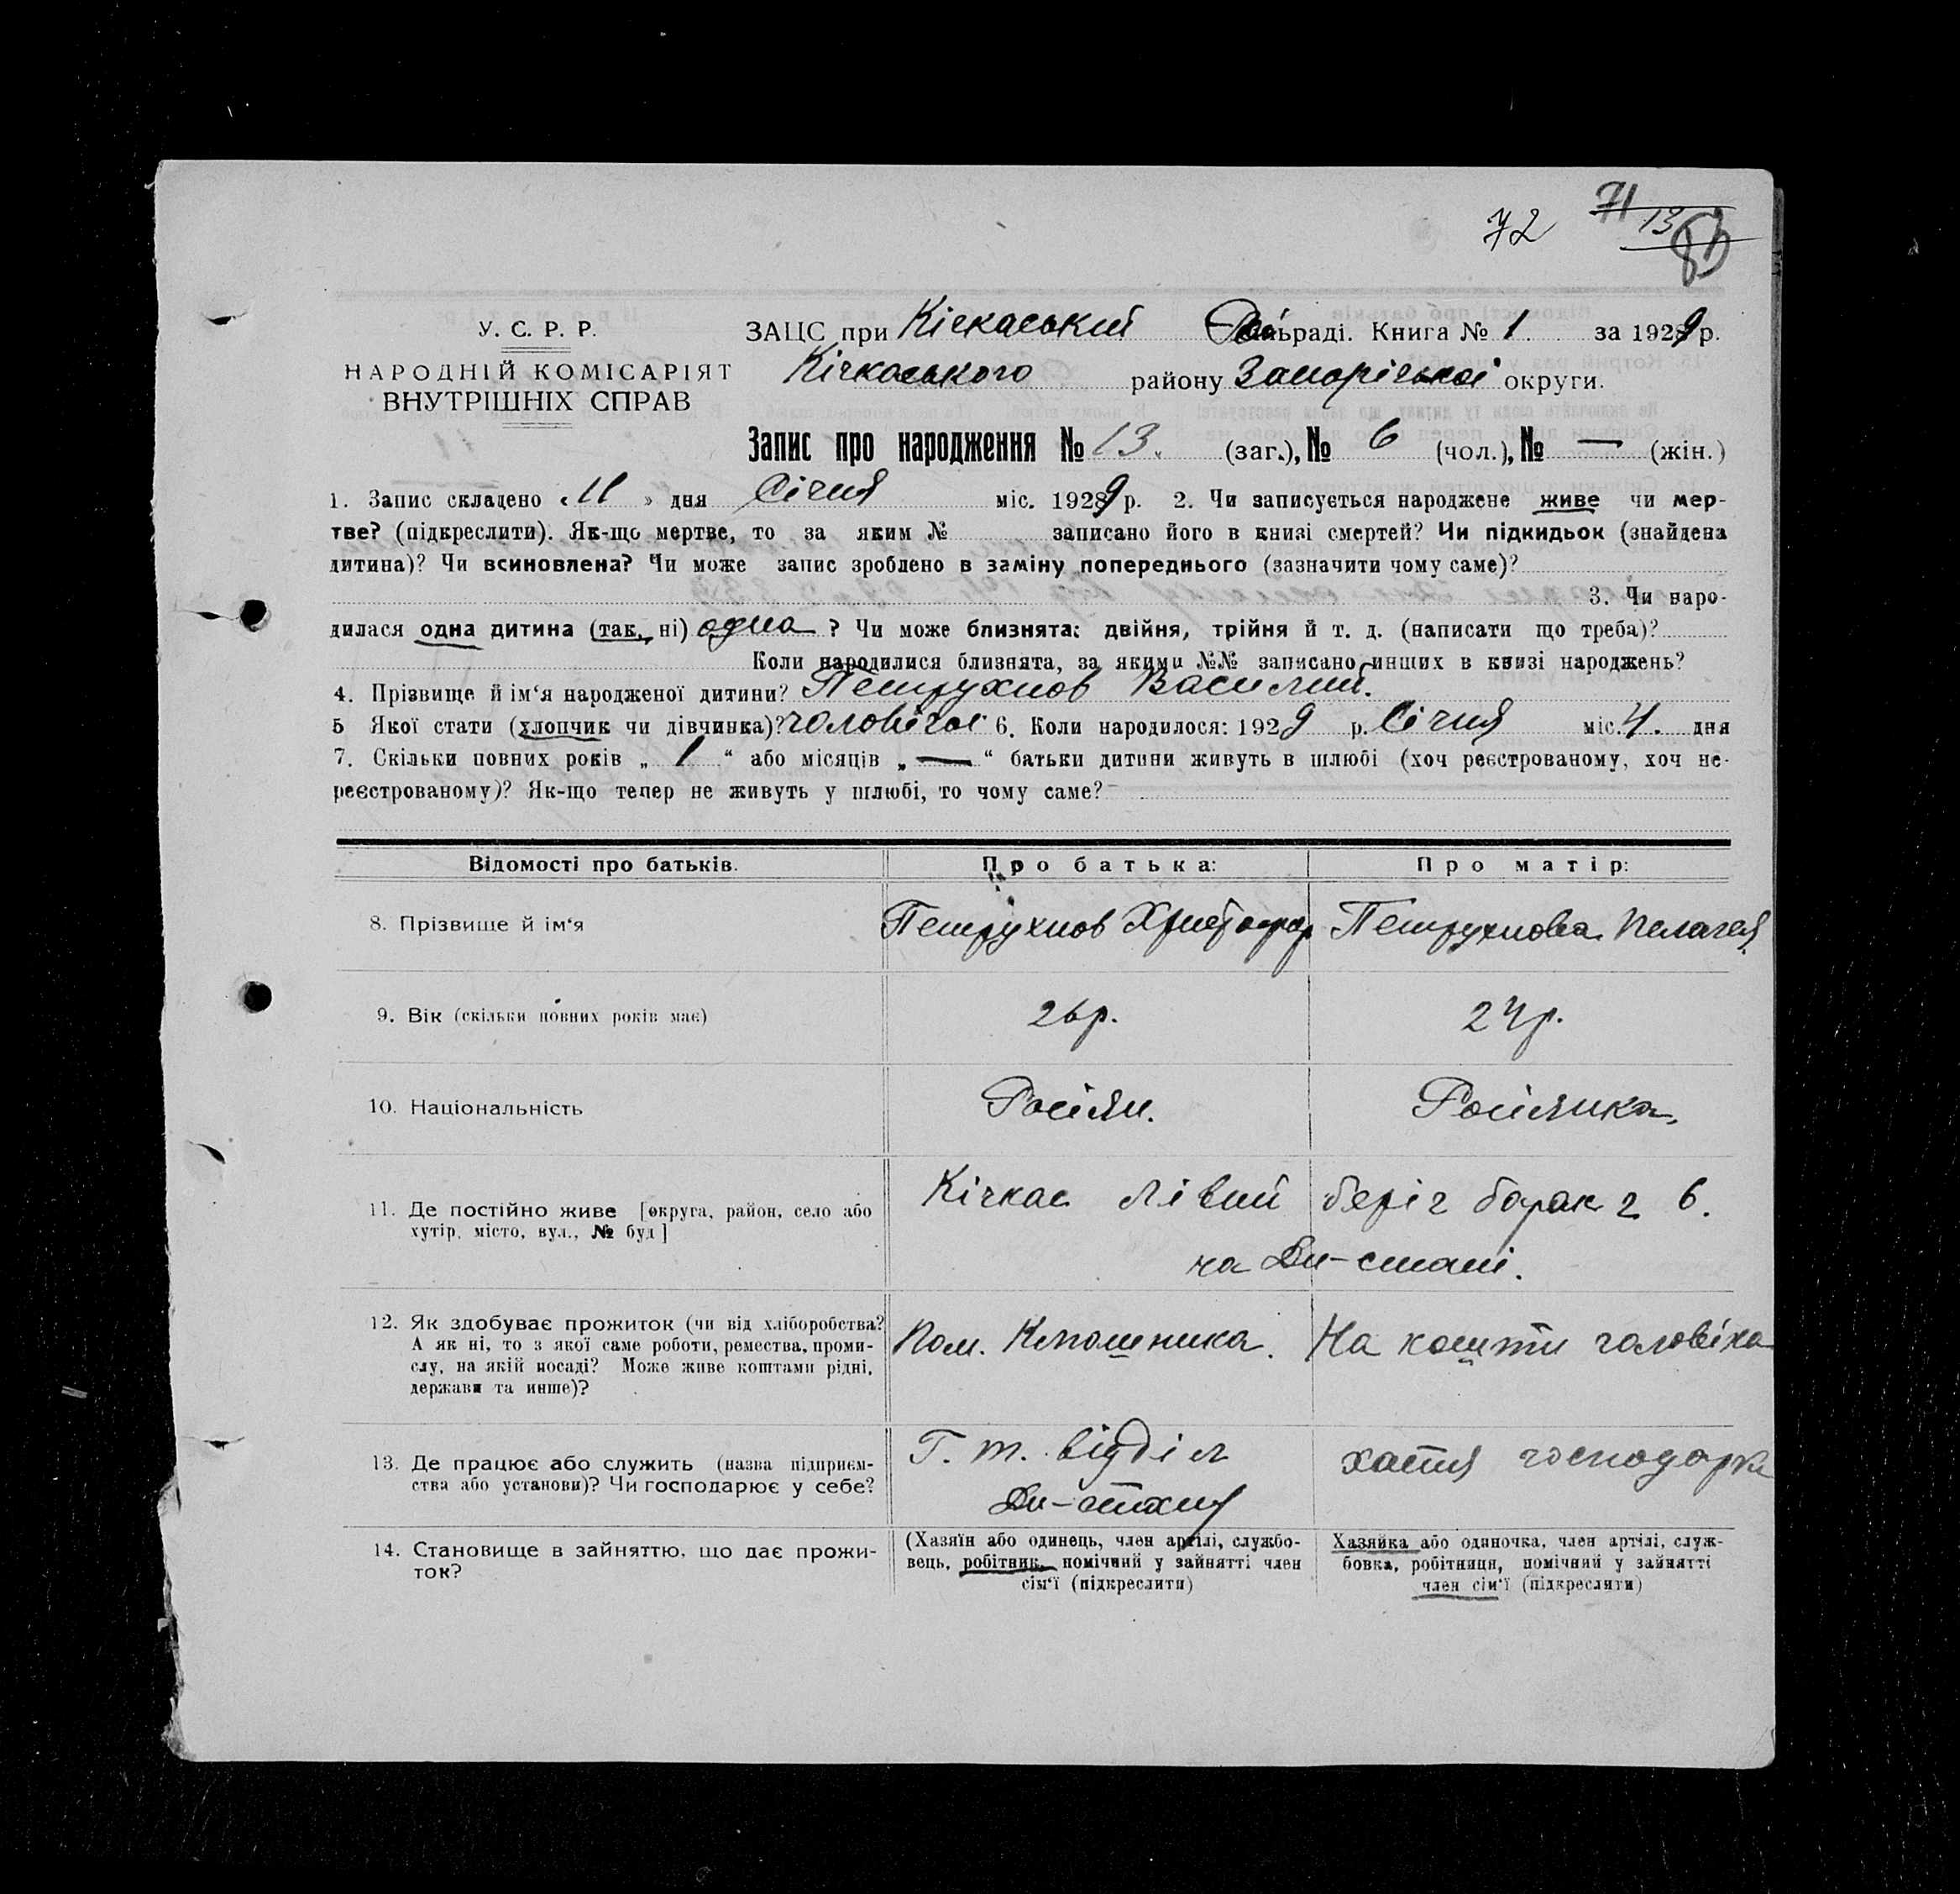 72 71 13
У. С. Р. Р.
НАРОДНІЙ КОМІСАРІЯТ
ВНУТРІШНІХ СПРАВ
ЗАЦС при Кічкаський раді. Книга № 1 за 1929 р.
Кічкаського району Запорізької округи.
Запис про народження № 13. (заг.), № 6 (чол.), № — (жін.)
1. Запис складено « 11 » дня Січня міс. 1929 р. 2. Чи записується народжене живе чи мер-
тве? (підкреслити). Як-що мертве, то за яким № записано його в книзі смертей? Чи підкидьок (знайдена
дитина)? Чи всиновлена? Чи може запис зроблено в заміну попереднього (зазначити чому саме)?
3. Чи наро-
дилася одна дитина (так, ні) одна ? Чи може близнята: двійня, трійня й т. д. (написати що треба)?
Коли народилися близнята, за якими №№ записано инших в книзі народжень?
4. Прізвище й ім‘я народженої дитини? Петрухнов Василий.
5 Якої стати (хлопчик чи дівчинка)? чоловічої 6. Коли народилося: 1929 р. Січня міс. 4. дня
7. Скільки повних років „ 1 “ або місяців „ — “ батьки дитини живуть в шлюбі (хоч реєстрованому, хоч не-
реєстрованому)? Як-що тепер не живуть у шлюбі, то чому саме? —
Відомості про батьків. Про батька: Про матір:
8. Прізвище й ім‘я Петрухнов Христофор Петрухнова Пелагея
9. Вік (скільки повних років має) 26 р. 24 р.
10. Національність Росіян. Росіянка.
11. Де постійно живе [округа, район, село або Кічкас Лівий беріг барак 2 6.
хутір, місто, вул., № буд] на Дн-стані.
12. Як здобуває прожиток (чи від хліборобства? Пом. Клпошника. На кошти чоловіка
А як ні, то з якої саме роботи, ремества, проми-
слу, на якій посаді? Може живе коштами рідні,
держави та инше)?
13. Де працює або служить (назва підприєм- Г. т. відділ хатня господарка
ства або установи)? Чи господарює у себе?
14. Становище в зайняттю, що дає прожи-
ток?
(Хазяїн або одинець, член артілі, службо-
вець, робітник, помічний у зайнятті член
сім‘ї (підкреслити)
Хазяйка або одиночка, член артілі, служ-
бовка, робітниця, помічний у зайнятті
член сім‘ї (підкреслити)